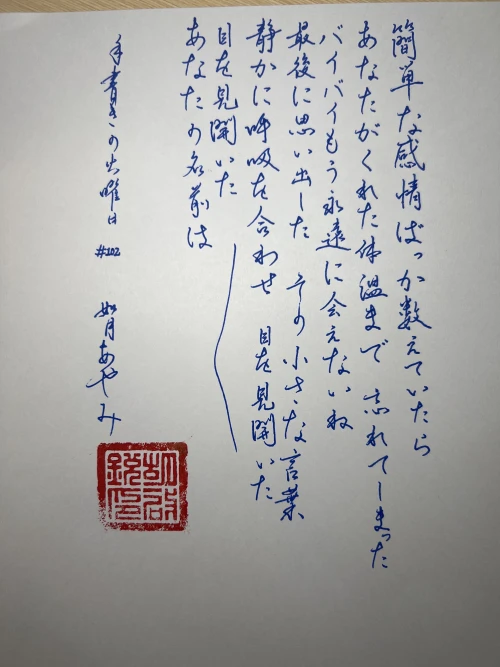 簡単な感情ばっか数えていたら
あなたがくれた体温まで 忘れてしまった
バイバイもう永遠に会えないね
最後に思い出した その小さな言葉
静かに呼吸を合わせ 目を見開いた
目を見開いた
あなたの名前は
手書きの火曜日 #102 如月あやみ